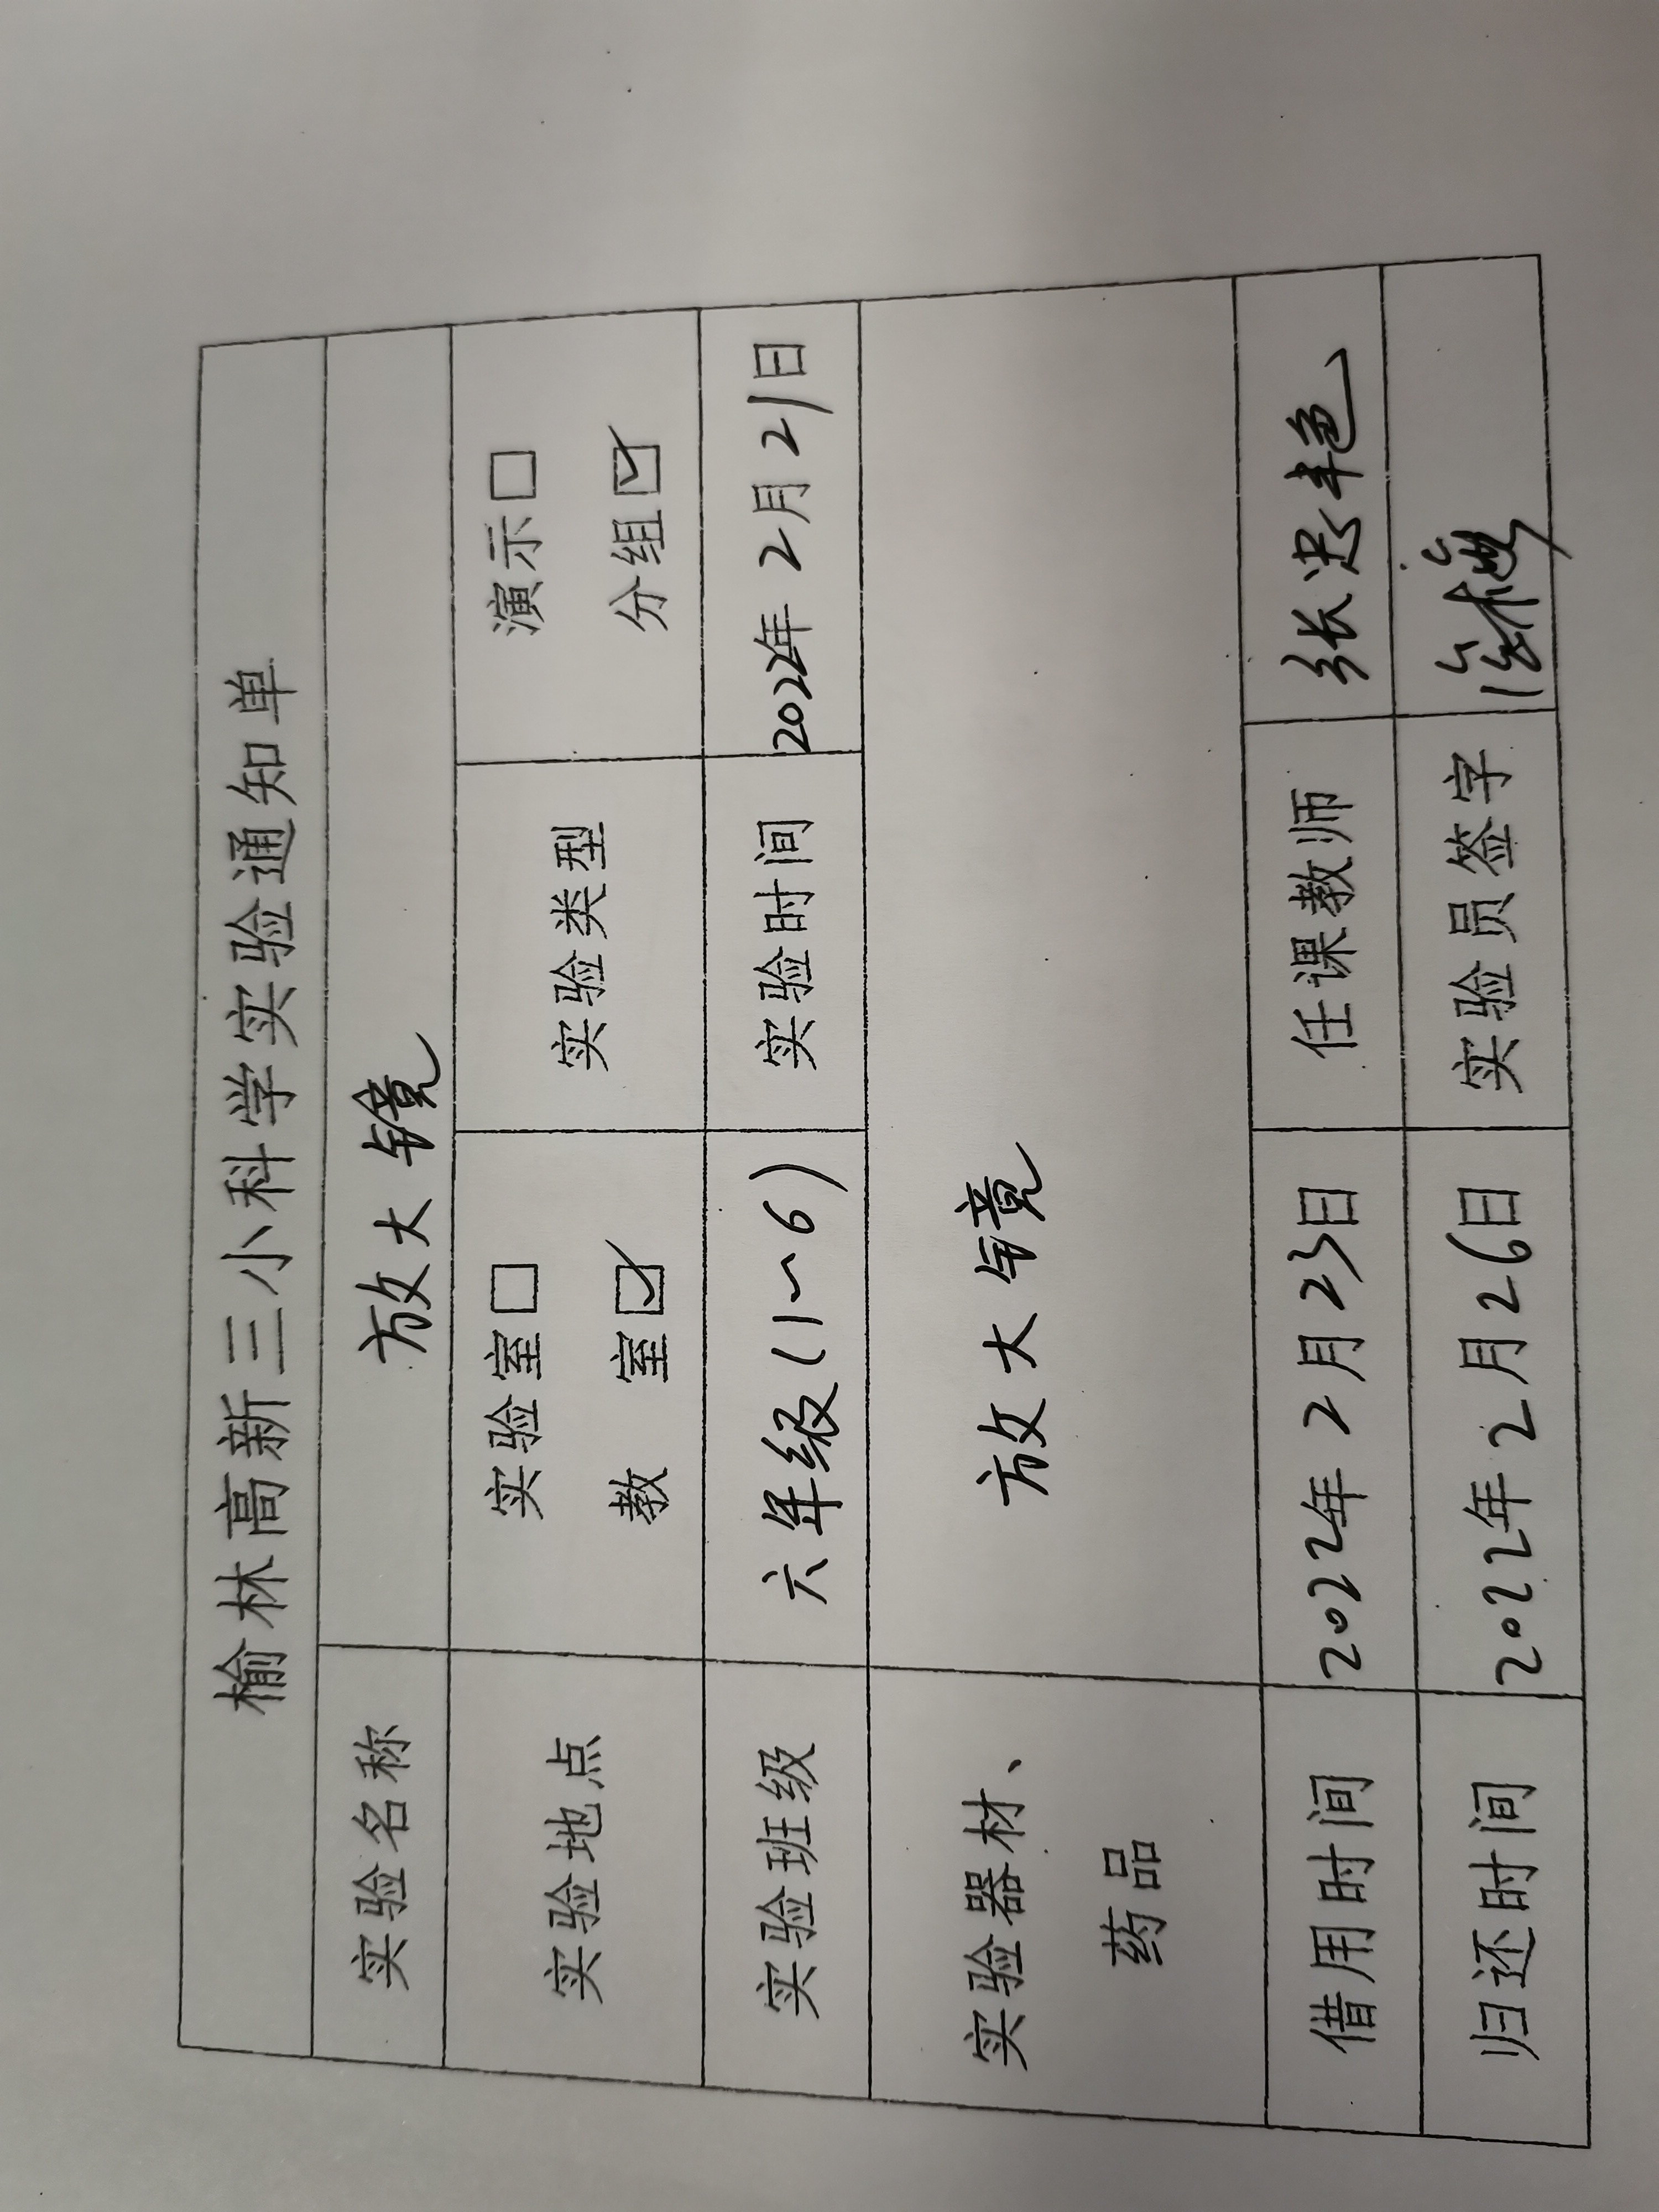 榆林高新三小科学实验通知单
实验名称 放大镜
实验地点 实验室□ 教室☑ 实验类型 演示□ 分组☑
实验班级 六年级(1~6) 实验时间 2022年2月21日
实验器材、药品 放大镜
借用时间 2022年2月23日 任课教师 张忠艳
归还时间 2022年2月26日 实验员签字